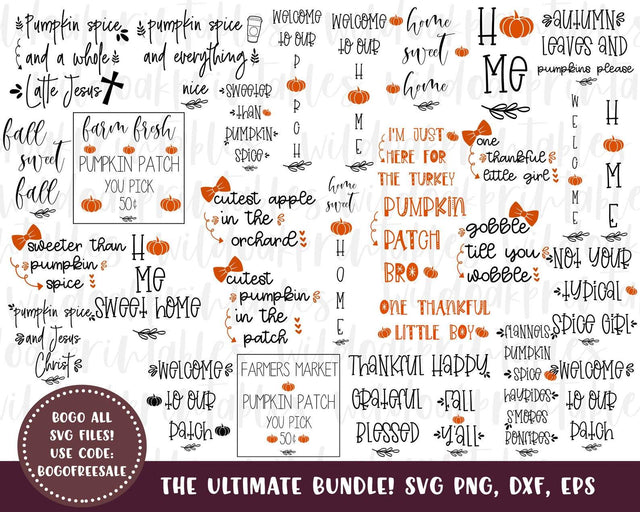 Pumpkin spice
and a whole
Latte Jesus
pumpkin spice
and everything
nice
WELCOME
TO OUR
PORCH
SWEETER
THAN
PUMPKIN
SPICE
WELCOME
TO OUR
HOME
home
sweet
home
HOME
AUTUMN
LEAVES AND
pumpkins please
fall
sweet
fall
farm fresh
PUMPKIN PATCH
YOU PICK
50¢
I'M JUST
HERE FOR
THE TURKEY
one
thankful
little girl
WELCOME
HOME
cutest apple
in the
orchard
home
sweet
HOME
PUMPKIN
PATCH
BRO
gobble
till you
wobble
sweeter than
pumpkin
spice
HOME
SWEET HOME
cutest
pumpkin
in the
patch
NOT YOUR
TYPICAL
SPICE GIRL
pumpkin spice
and Jesus
Christ
ONE THANKFUL
LITTLE BOY
FLANNELS
PUMPKIN
SPICE
HAYRIDES
S'MORES
BONFIRES
WELCOME
TO OUR
PATCH
FARMERS MARKET
PUMPKIN PATCH
YOU PICK
50¢
THANKFUL
GRATEFUL
BLESSED
HAPPY
FALL
Y'ALL
WELCOME
TO OUR
PATCH
BOGO ALL
SVG FILES!
USE CODE:
BOGOFREESALE
THE ULTIMATE BUNDLE! SVG PNG, DXF, EPS